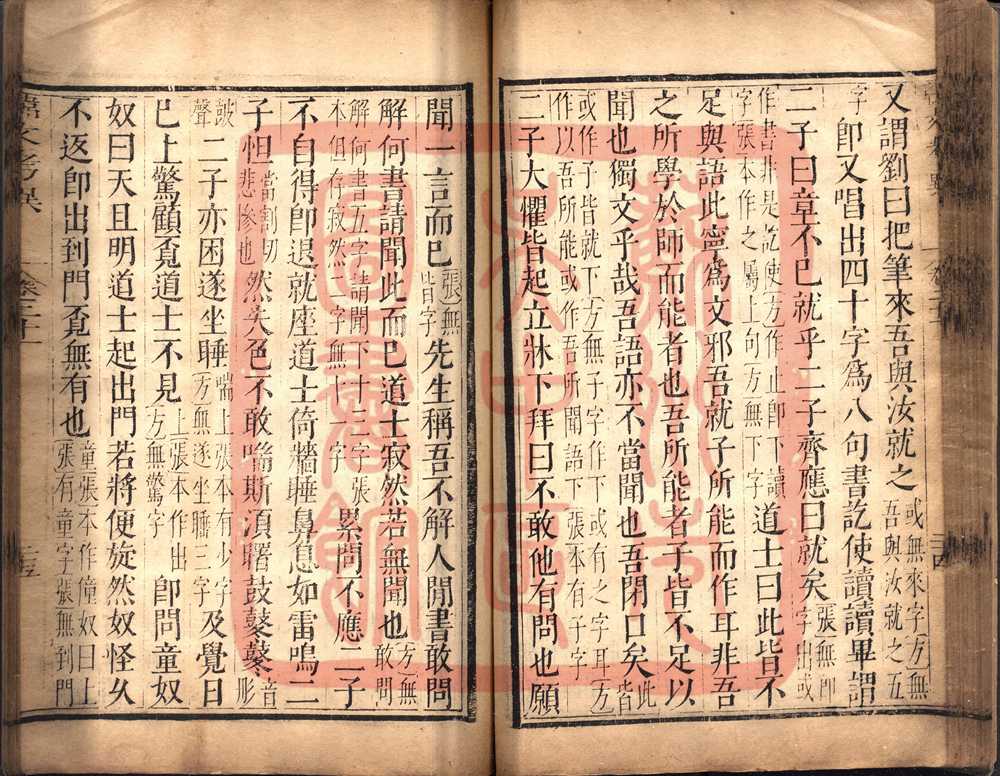 又謂劉曰把筆來吾與汝就之或無來字方無吾與汝就之五
字即又唱出四十字爲八句書訖使讀讀畢謂
二子曰章不已就乎二子齊應曰就矣張無即字出或
作書非是訖使方作止即下讀字張本作之屬上句方無下字道士曰此皆不
足與語此寧爲文邪吾就子所能而作耳非吾
之所學於師而能者也吾所能者子皆不足以
聞也獨文乎哉吾語亦不當聞也吾閉口矣此皆
或作子皆就下方無子字作下或有之字耳方作以吾所能或作吾所聞語下張本有子字
二子大懼皆起立牀下拜曰不敢他有問也願
聞一言而已張無皆字先生稱吾不解人閒書敢問
解何書請聞此而已道士寂然若無聞也方無敢問
解何書五字請聞下十二字張本但存寂然二字無十一字累問不應二子
不自得卽退就座道士倚牆睡鼻息如雷鳴二
子怛當割切悲慘也然失色不敢喘斯湏曙鼓鼕鼕音彤
皷聲二子亦困遂坐睡喘上張本有少字方無遂坐睡三字及覺日
已上驚顧覓道士不見上張本作出方無驚字卽問童奴
奴曰天且明道士起出門若將便旋然奴怪久
不返卽出到門覓無有也童張本作僮奴曰上張有童字張無到門
韓文考異